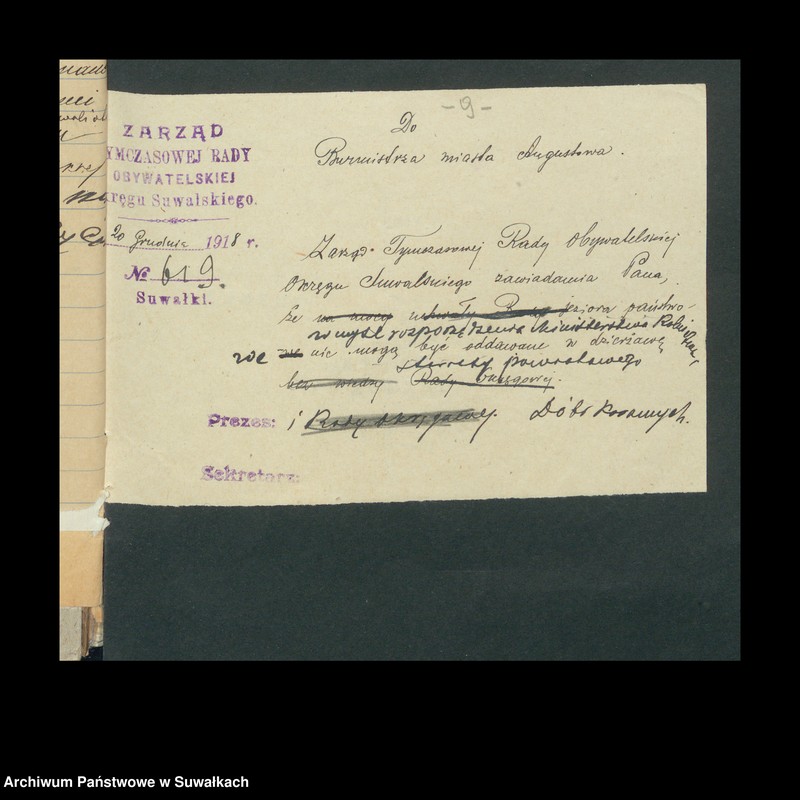 - 9 -
ZARZĄD
YMCZASOWEJ RADY
OBYWATELSKIEJ
kręgu Suwalskiego.
20 Grudnia 1918 r.
№ 619.
Suwałki.
Do
Burmistrza miasta Augustowa.
Zarząd Tymczasowej Rady Obywatelskiej
Okręgu Suwalskiego zawiadamia Pana,
że na mocy uchwały Rady jeziora państwo-
w myśl rozporządzenia Ministerstwa Rolnictwa
we nie mogą być oddawane w dzierżawę
starosty powiatowego
bez wiedzy Rady Okręgowej.
Prezes: i Rady Okręgowej. Dóbr
Sekretarz:
Archiwum Państwowe w Suwałkach